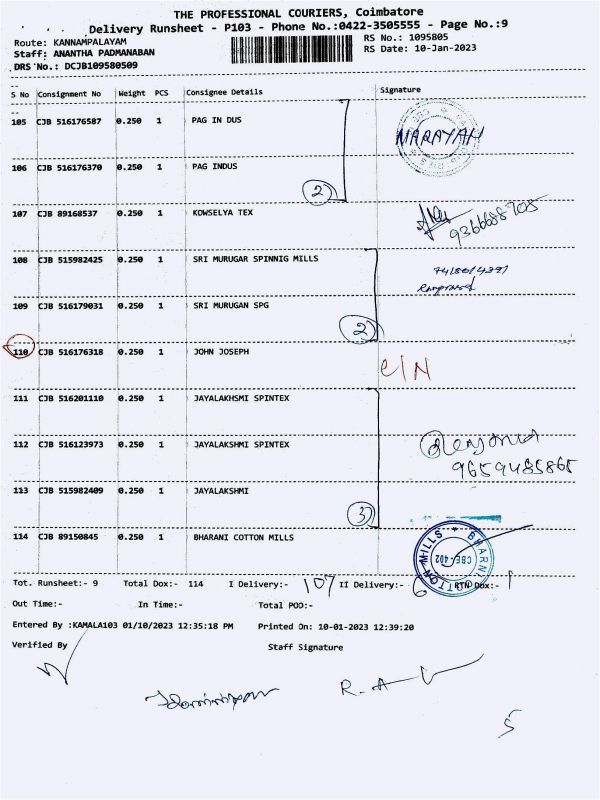 THE PROFESSIONAL COURIERS, Coimbatore
Delivery Runsheet - P103 - Phone No.:0422-3505555 - Page No.:9
Route: KANNAMPALAYAM
RS No.: 1095805
Staff: ANANTHA PADMANABAN
RS Date: 10-Jan-2023
DRS No.: DCJB109580509
S No Consignment No Weight PCS Consignee Details Signature
105 CJB 516176587 0.250 1 PAG IN DUS
NARAYAN
106 CJB 516176370 0.250 1 PAG INDUS
2
107 CJB 89168537 0.250 1 KOWSELYA TEX
9366688705
108 CJB 515982425 0.250 1 SRI MURUGAR SPINNIG MILLS
109 CJB 516179031 0.250 1 SRI MURUGAN SPG
2
110 CJB 516176318 0.250 1 JOHN JOSEPH
C/N
111 CJB 516201110 0.250 1 JAYALAKHSMI SPINTEX
112 CJB 516123973 0.250 1 JAYALAKSHMI SPINTEX
9659485865
113 CJB 515982409 0.250 1 JAYALAKSHMI
3
114 CJB 89150845 1 0.250 1 BHARANI COTTON MILLS
CBE-402
Tot. Runsheet:- 9 Total Dox:- 114 I Delivery:- 107 II Delivery:- 6 RTN Dox:- 1
Out Time:- In Time:- Total POD:-
Entered By :KAMALA103 01/10/2023 12:35:18 PM Printed On: 10-01-2023 12:39:20
Verified By Staff Signature
5